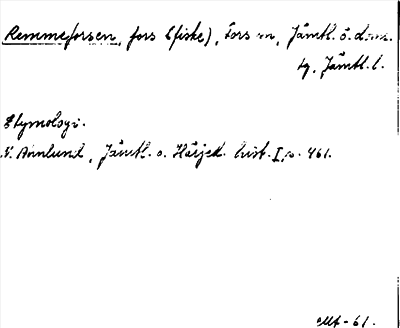 Remmeforsen, fors (fiske), Fors sn, Jämtl. ö. doms.
tg, Jämtl. l.
Etymologi.
N. Ahnlund, Jämtl. o. Härjed. hist. I, s. 461.
-61.